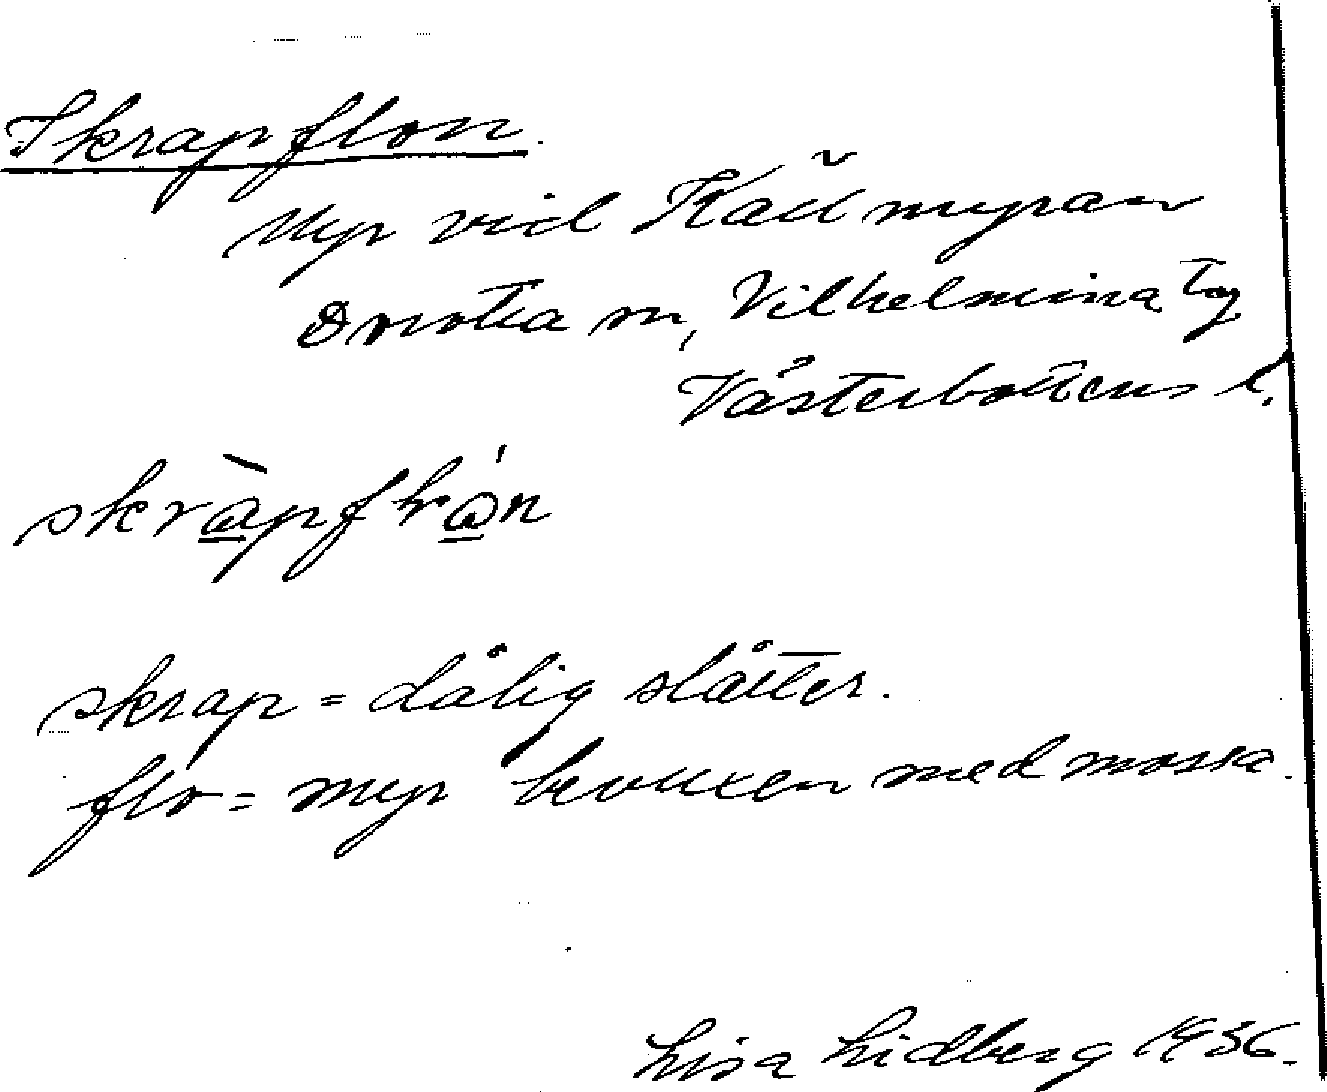 Skrapflon.
Myr vid Källmyran
Dorotea sn, Vilhelmina tg
Västerbottens l.
skrap = dålig slåtter.
flo = myr bevuxen med mossa.
Lisa Lidberg 1936.